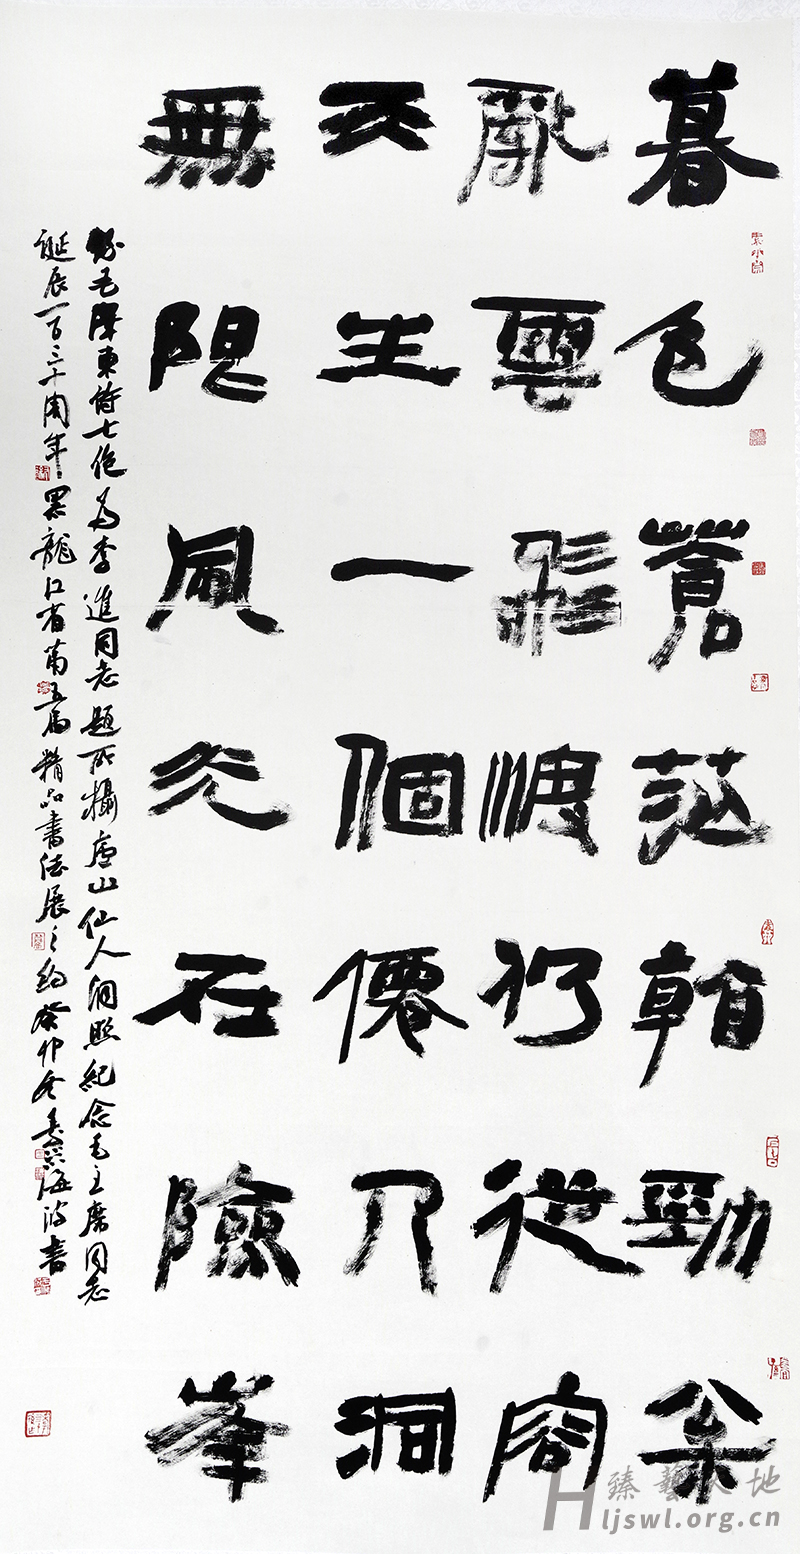 暮色蒼茫看勁枀
亂雲飛渡仍從容
天生一個僊人洞
無限風光在險峯
録毛澤東詩七绝為李進同志題所攝廬山仙人洞照紀念毛主席同志
誕辰一百三十周年黑龍江省第五届精品書法展之約癸卯冬海波書
臻藝天地
Hljswl.org.cn